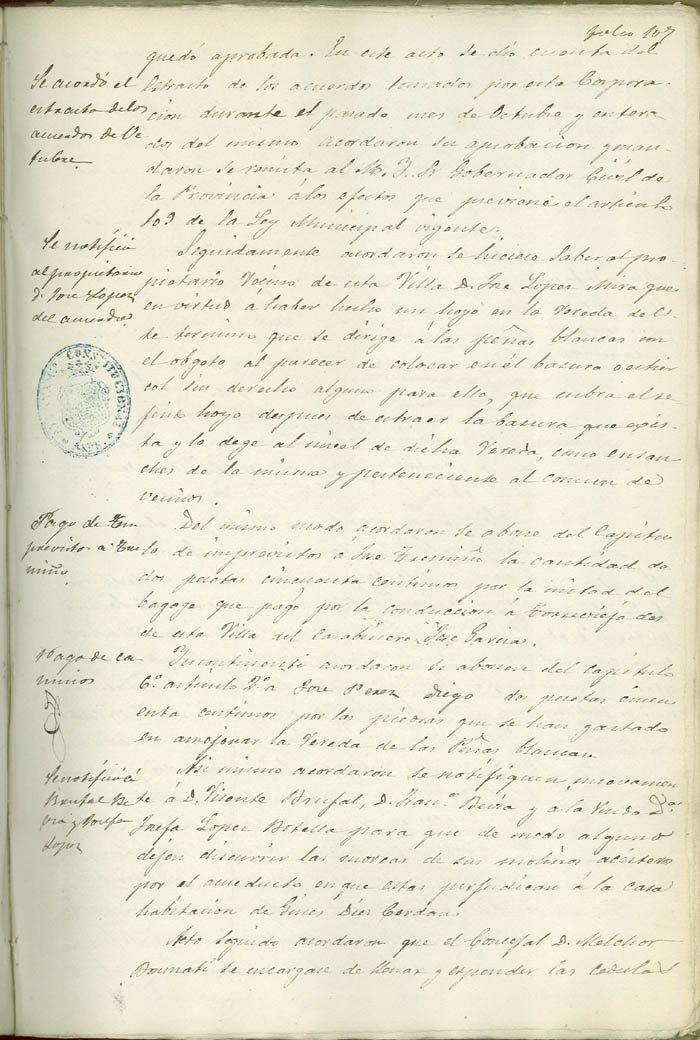 folio 107
quedó aprobada. En este acto se dio cuenta del
Se acordó el
extracto de los
acuerdos de Oc
tubre.
extracto de los acuerdos tomados por esta Corpora
cion durante el pasado mes de Octubre y entera
dos del mismo acordaron su aprobacion y man
daron se remita al M. Y. Sr Gobernador Civil de
la Provincia á los efectos que previene el articulo
109 de la Ley Municipal vigente.
Se notificó
al propietario
D. Jose Lopez
del acuerdo
Seguidamente acordaron se hiciese saber al pro-
pietario Vecino de esta Villa D. Jose Lopez Mira que
en virtud a haber hecho un hoyo en la Vereda de es
te termino que se dirige á las peñas blancas con
el obgeto al parecer de colocar en él basura o estier
col sin derecho alguno para ello, que cubra el re
ferido hoyo despues de extraer la basura que exis-
ta y lo dege al nivel de dicha Vereda, como ensan
ches de la misma y perteneciente al comun de
vecinos.
CONSTITUCIONAL
Pago de Im
previstos a
Del mismo modo acordaron se abone del Capitu
lo de imprevistos a Jose la cantidad de
dos pesetas cincuenta centimos por la mitad del
bagage que pagó por la conduccion á Torrevieja des
de esta Villa del Carabinero Jose Garcia.
Pago de ca
minos
Incontinenti acordaron se abonen del capitulo
6º articulo 2º a Jose Perez Diego dos pesetas cincu
enta centimos por las piedras que se han gastado
en amojonar la Vereda de las Peñas blancas.
Se notificó á
Brufal
y Josefa
Lopez
Asi mismo acordaron se notifiquen nuevamen
te á D. Vicente Brufal, D. Franº y a la Viuda Dª
Josefa Lopez Botella para que de modo alguno
dejen discurrir las morcas de sus molinos aceiteros
por el aueducto en que estas perjudican á la casa
habitacion de Gines Dies Cerdan.
Acto seguido acordaron que el Concejal D. Melchor
se encargase de llenar y espender las cedulas